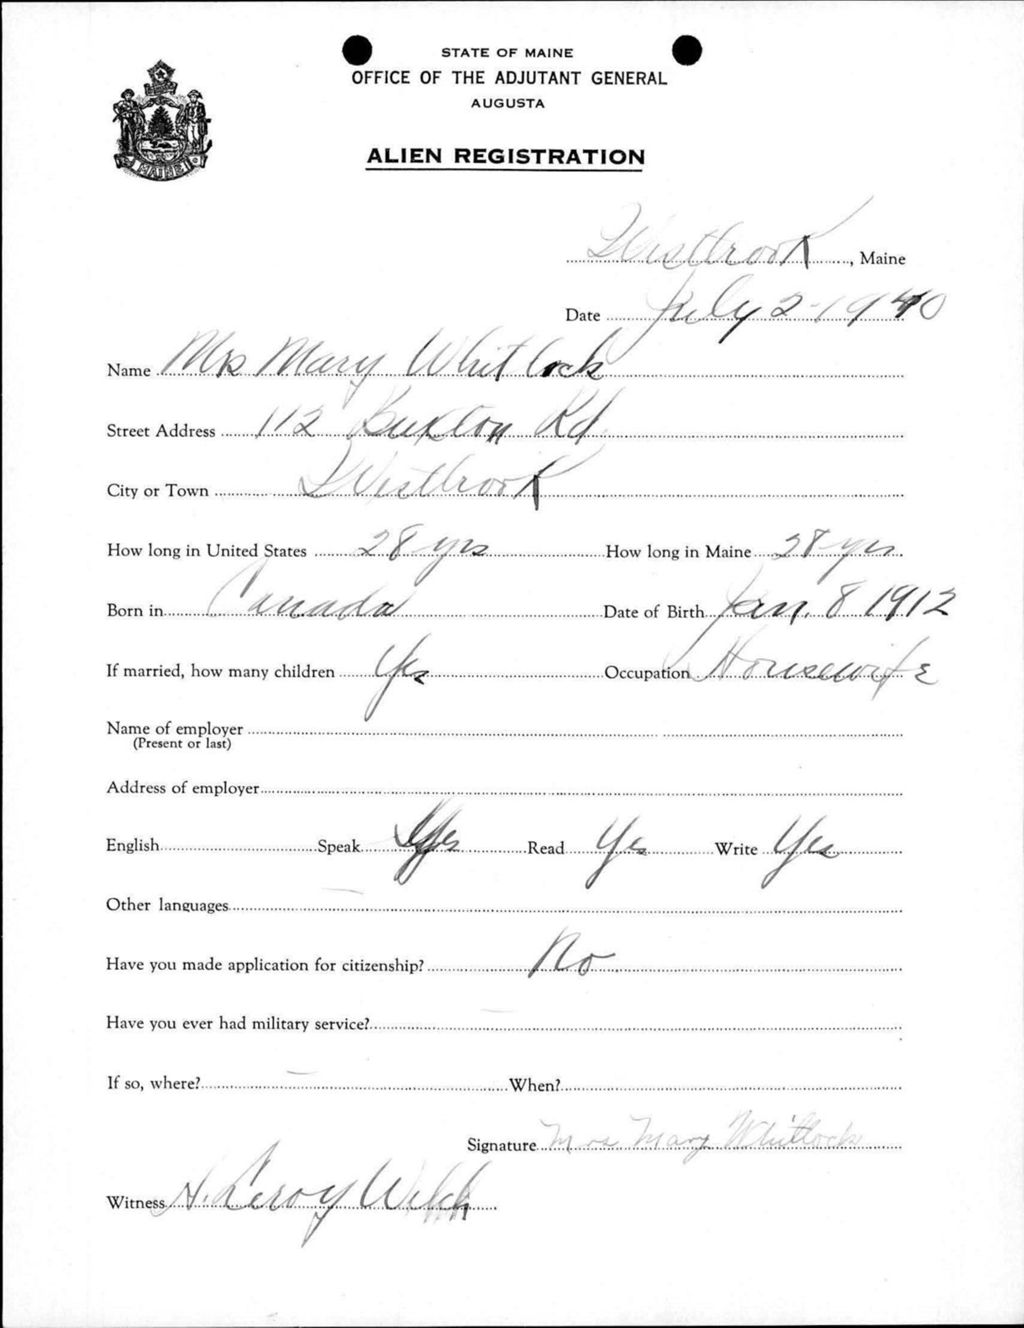 STATE OF MAINE
OFFICE OF THE ADJUTANT GENERAL
AUGUSTA
ALIEN REGISTRATION
MAINE
Westbrook, Maine
Date July 2-1940
Name Mrs Mary Whitlock
Street Address 112 Buxton Rd
City or Town Westbrook
How long in United States 28 yrs How long in Maine 28 yrs
Born in Canada Date of Birth Jan. 8 1912
If married, how many children Yes Occupation Housewife
Name of employer
(Present or last)
Address of employer
English Speak Yes Read Yes Write Yes
Other languages —
Have you made application for citizenship? No
Have you ever had military service? —
If so, where? — When?
Signature Mrs Mary Whitlock
Witness H. Leroy Welch